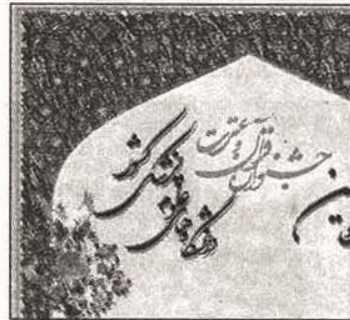 جشنواره قرآن و عترت
دانشگاههای علوم پزشکی کشور